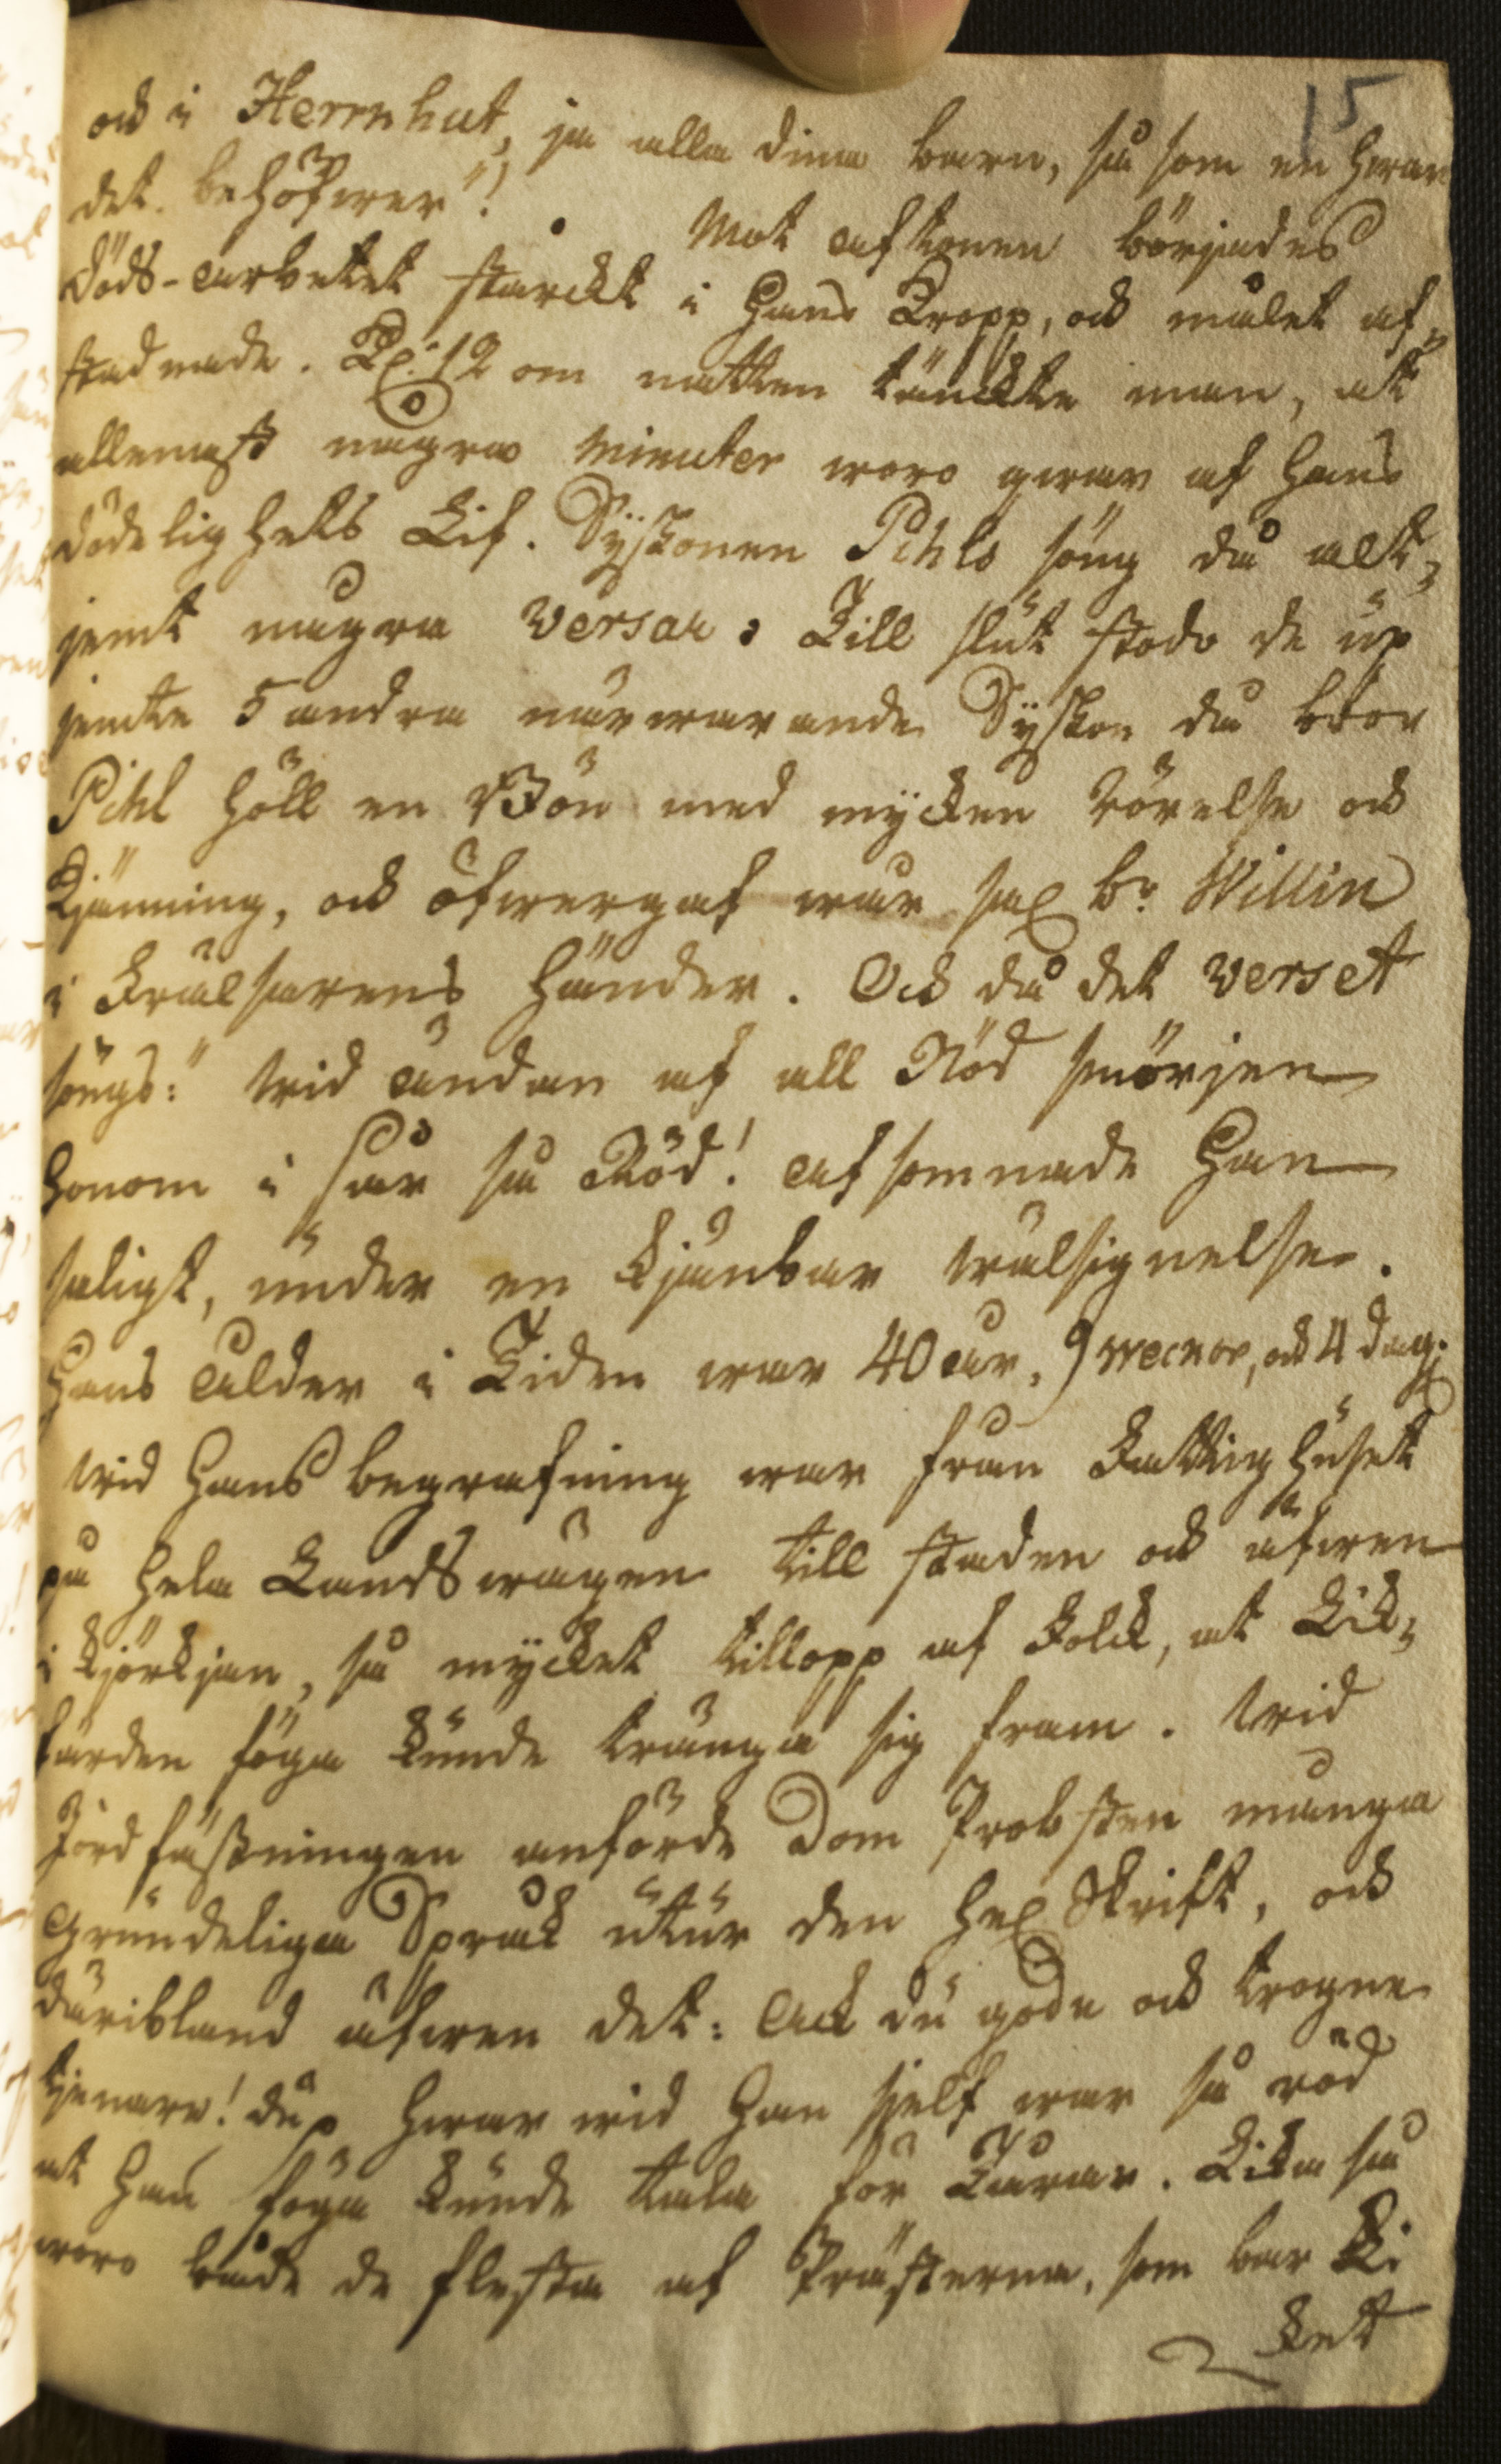 15
och i Herrnhut, ja alla dina barn, så som en hwar
det behöfwer"! Mot aftonen börjades
Döds-arbetet starckt i hans Kropp, och målet af-
stadnade. Kl: 12 om natten tänckte man, at
allenast några Minuter woro qwar af hans
dödelighets Lif. Syskonen Pihls söng då alt-
jemt några Versar: Till slut stodo de up
jemte 5 andra närwarande Syskon då bror
Pihl höll en Bön med mycken rörelse och
Kjänning, och öfwergaf wår sal br. Willin
i Frälsarens händer. Och då det verset
söngs: "wid ändan af all Nöd smörjen
honom i sår så Röd! afsomnade han
saligt, under en kjänbar wälsignelse.
Hans ålder i Tiden war 40 år, 9 weckor, och 4 dag:
Wid hans begrafning war från Fattighuset
på hela Landswägen till staden och äfwen
i kjörkjan, så mycket tillopp af Folck, at Lik-
färden föga kunde tränga sig fram. Wid
Jordfästningen anförde Dom Probsten många
grundeliga Språk utur den hel Skrift, och
däribland äfwen det: Ack du gode och trogne
tjenare! du, hwar wid han sjelf war så röd
at han föga kunde tala för Tårar. Lika så
woro både de flesta af Prästerna, som bar Li
ket